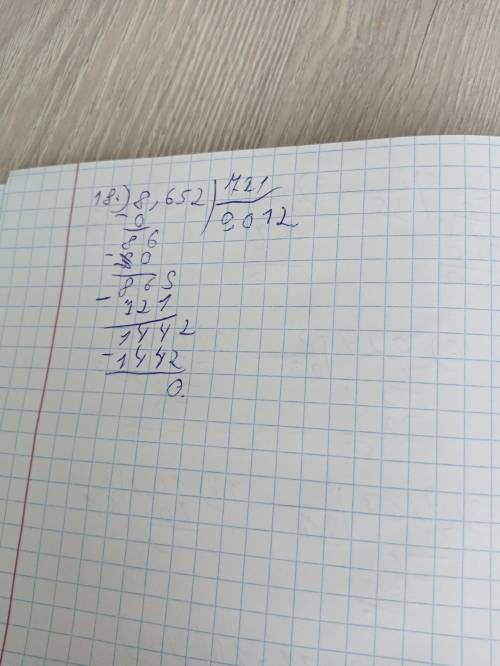 18.) 8,652 | 721
- 0 0,012
86
- 0
865
- 721
1442
- 1442
0.